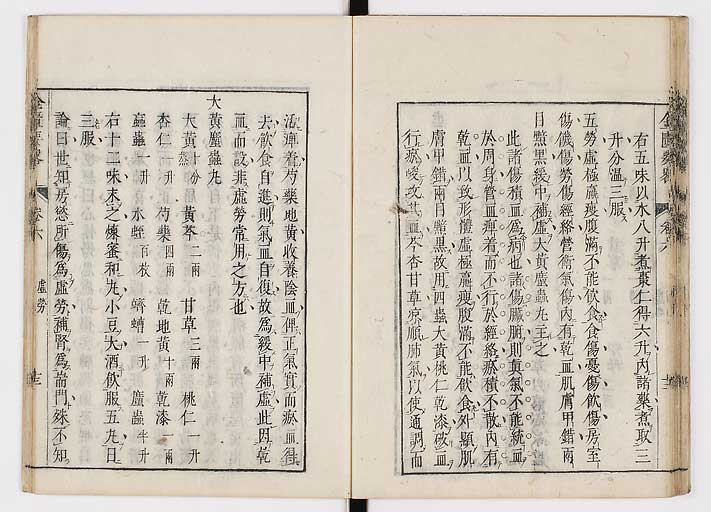 右五味以水八升煮棗仁得六升內諸藥煮取三
升分溫三服
五勞虛極羸瘦腹滿不能飲食食傷憂傷飲傷房室
傷饑傷勞傷經絡營衛氣傷內有乾血肌膚甲錯兩
目黯黑緩中補虛大黃䗪蟲丸主之
此諸傷積血為病也諸傷臟腑則眞氣不能統血
於周身管血痺着而不行於經絡瘀積不散內有
乾血以致形體虛極羸瘦腹滿不能飲食外顯肌
膚甲錯兩目黯黑故用四蟲大黃桃仁乾漆破血
行瘀峻攻其血芩杏甘草凉順肺氣以使通調而
金匱要畧
卷六
虛勞
着芍藥地黃收養陰血俾正氣實而瘀血得
去飲食自進則氣血自復故為緩中補虛此因乾
血而設非虛勞常用之方也
大黃䗪蟲丸
大黃十分蒸 黃芩二兩 甘草三兩 桃仁一升
杏仁一升 芍藥四兩 乾地黃十兩 乾漆一兩
蝱蟲一升 水蛭百枚 蠐螬一升 䗪蟲半升
右十二味末之煉蜜和丸小豆大酒飲服五丸日
三服
論曰世知房慾所傷為虛勞補腎為耑門殊不知